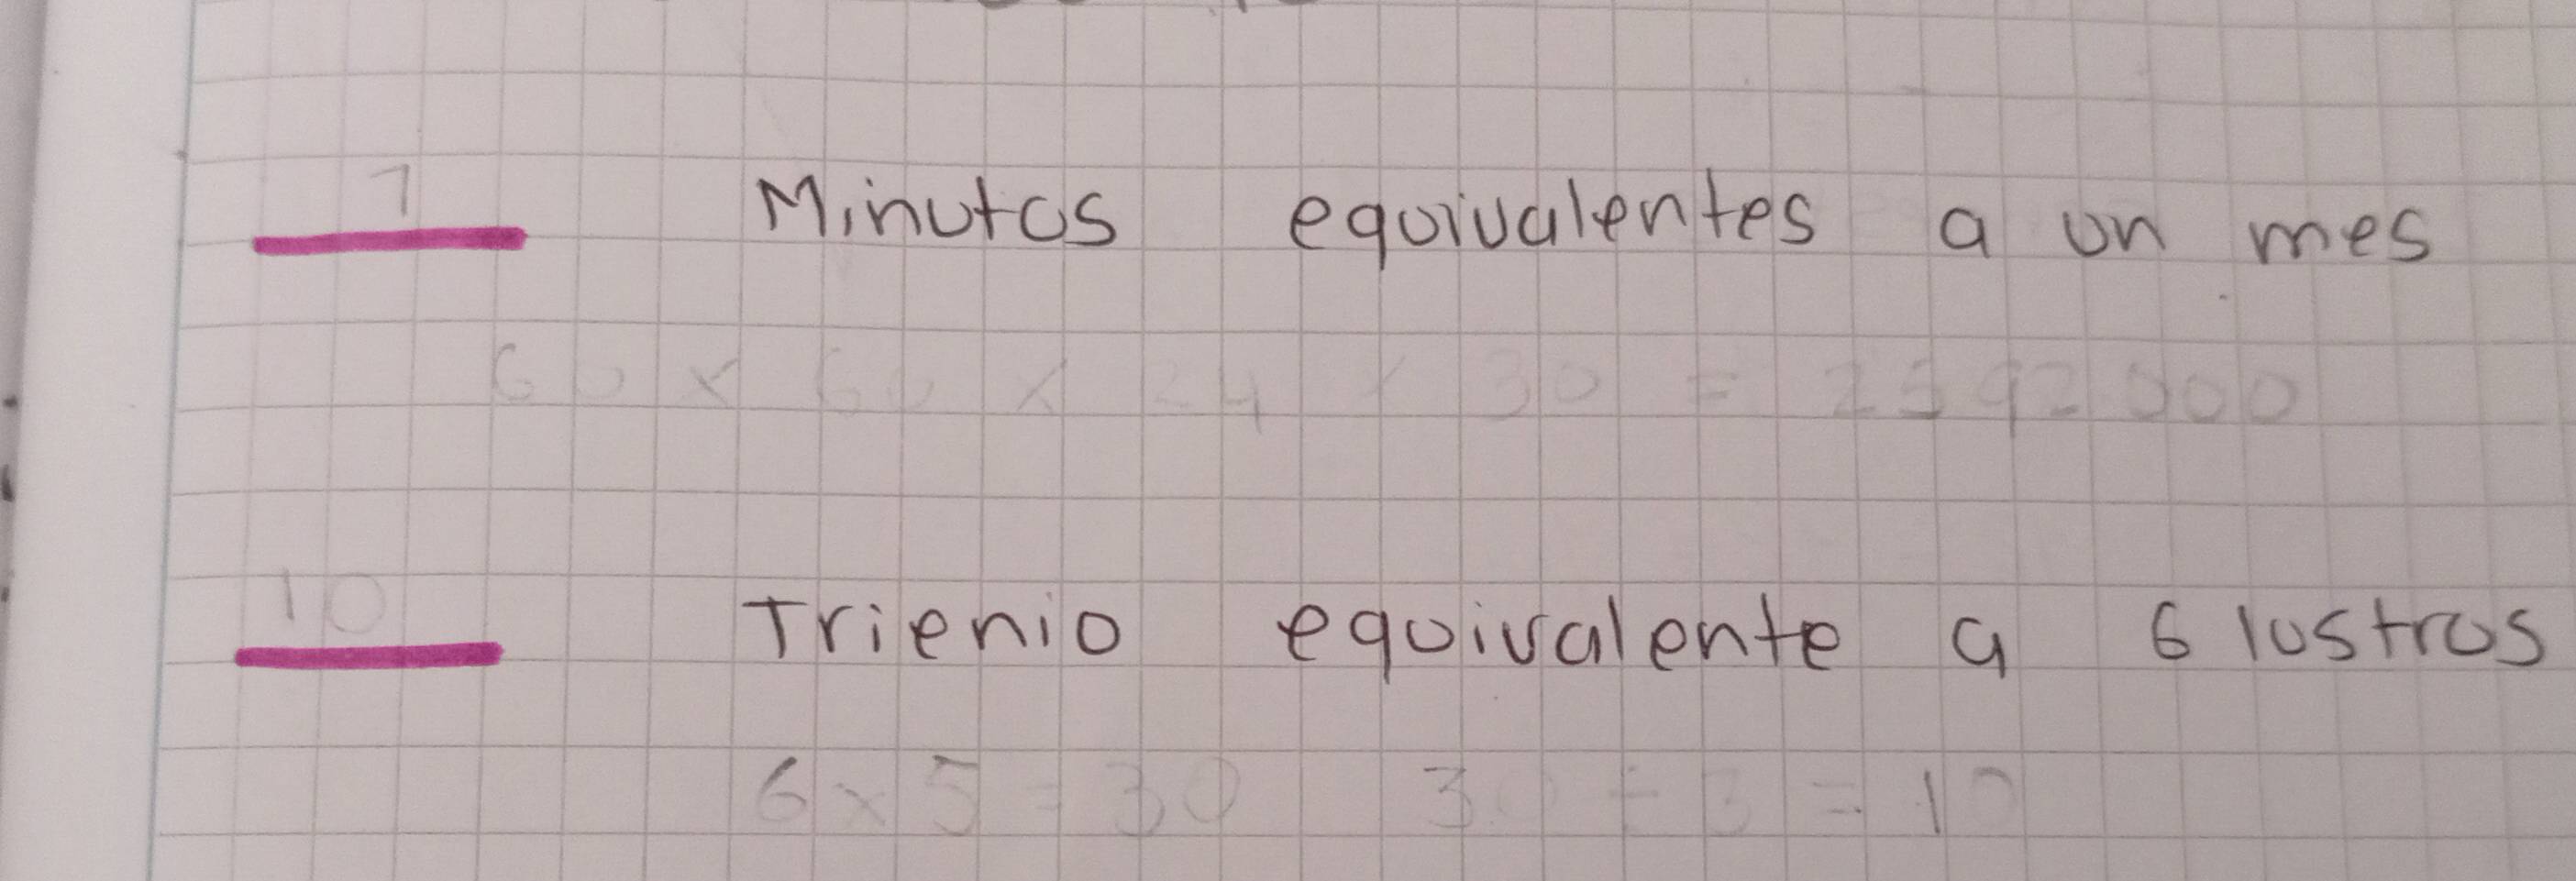 7 Minutos equivalentes a un mes
60 x 60 x 24 x 30 = 2592000
10 Trienio equivalente a 6 lustros
6 x 5 = 30 30 ÷ 3 = 10